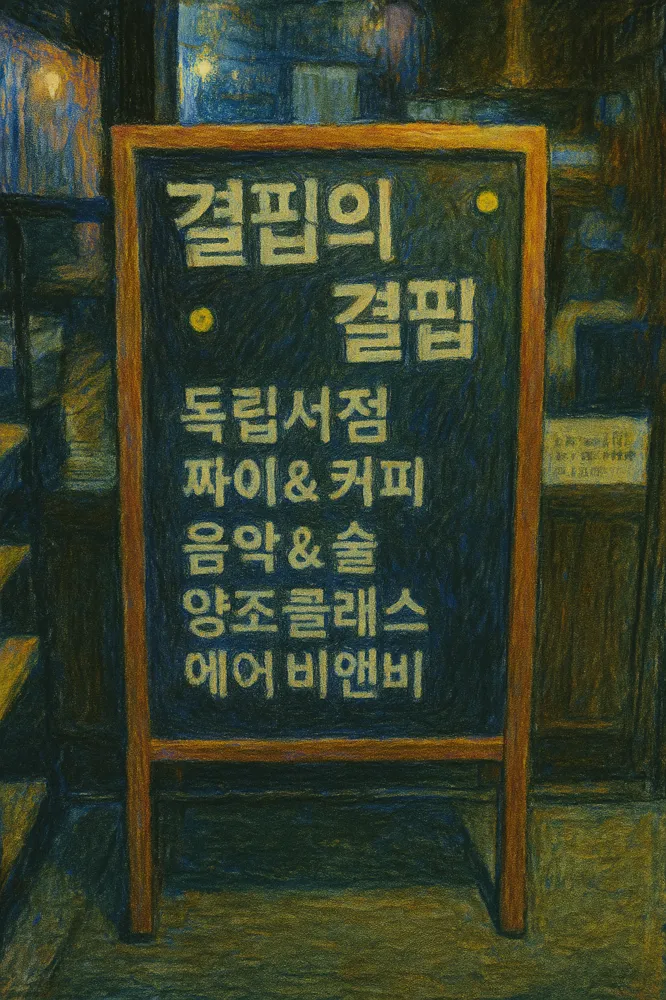 결핍의
결핍
독립서점
짜이&커피
음악&술
양조클래스
에어비앤비